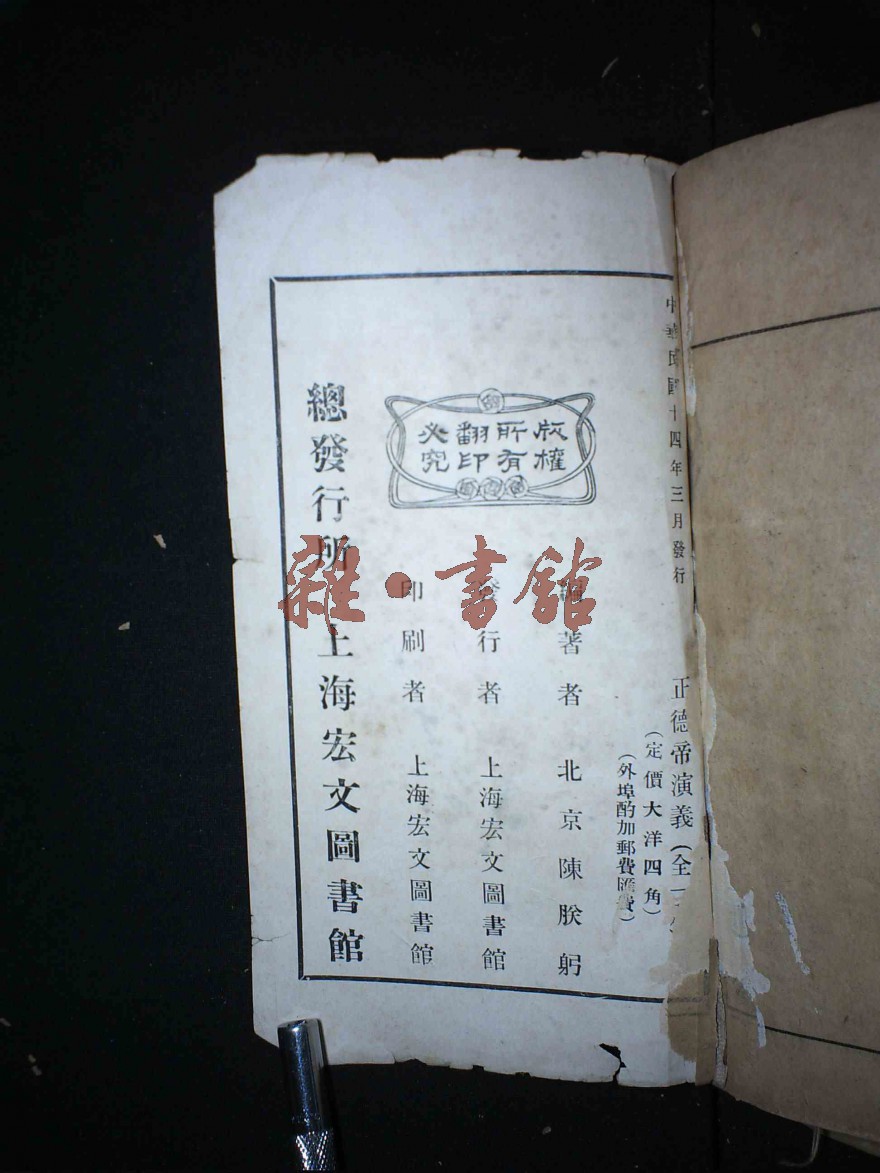 中華民國十四年三月發行
正德帝演義（全一
（定價大洋四角）
（外埠酌加郵費匯費）
版權所有翻印必究
編著者 北京陳朕躬
發行者 上海宏文圖書館
印刷者 上海宏文圖書館
總發行所 上海宏文圖書館
雜·書館